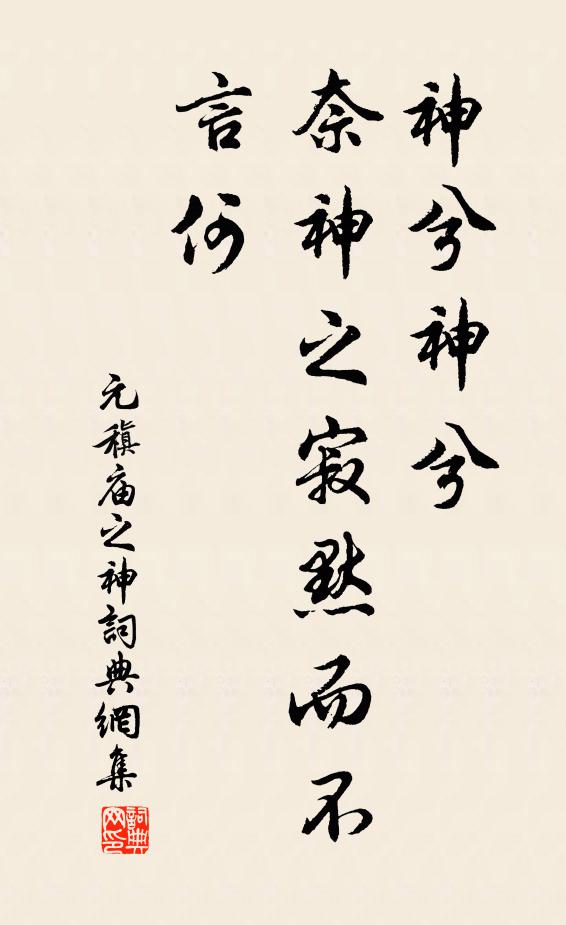 神兮神兮
奈神之寂默而不
言何
元稹庙之神詞典網集
詞典网印